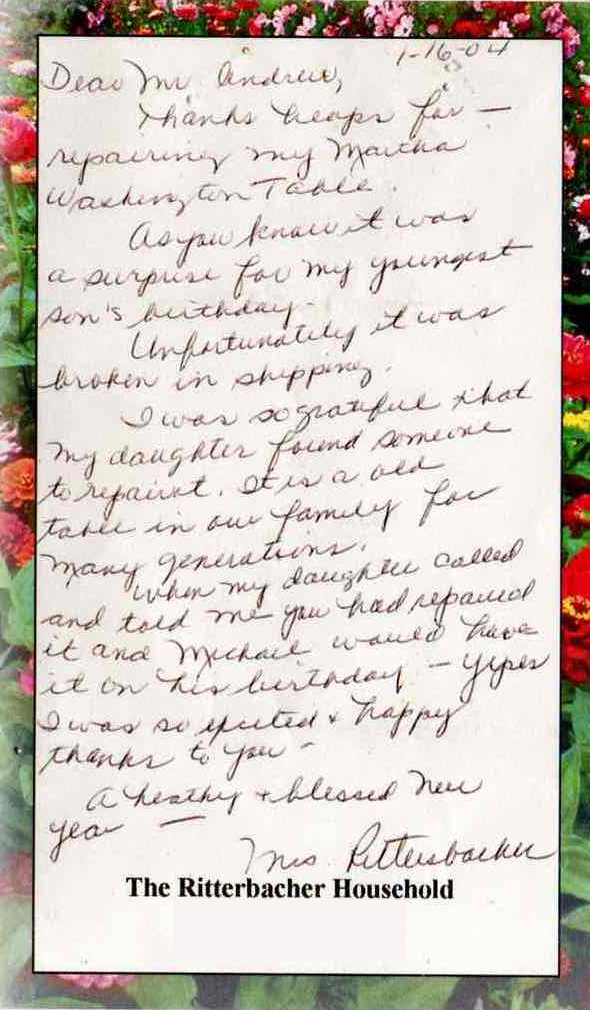 1-16-04
Dear Mr. Andrew,
Thanks heaps for —
repairing my Martha
Washington Table.
As you know it was
a surprise for my youngest
son's birthday.
Unfortunately it was
broken in shipping.
I was so grateful that
my daughter found someone
to repair it. It is a old
table in our family for
many generations.
When my daughter called
and told me you had repaired
it and Michael would have
it on his birthday — yipes
I was so excited & happy
thanks to you —
A healthy & blessed New
year —
Mrs. Rittersbacher
The Ritterbacher Household